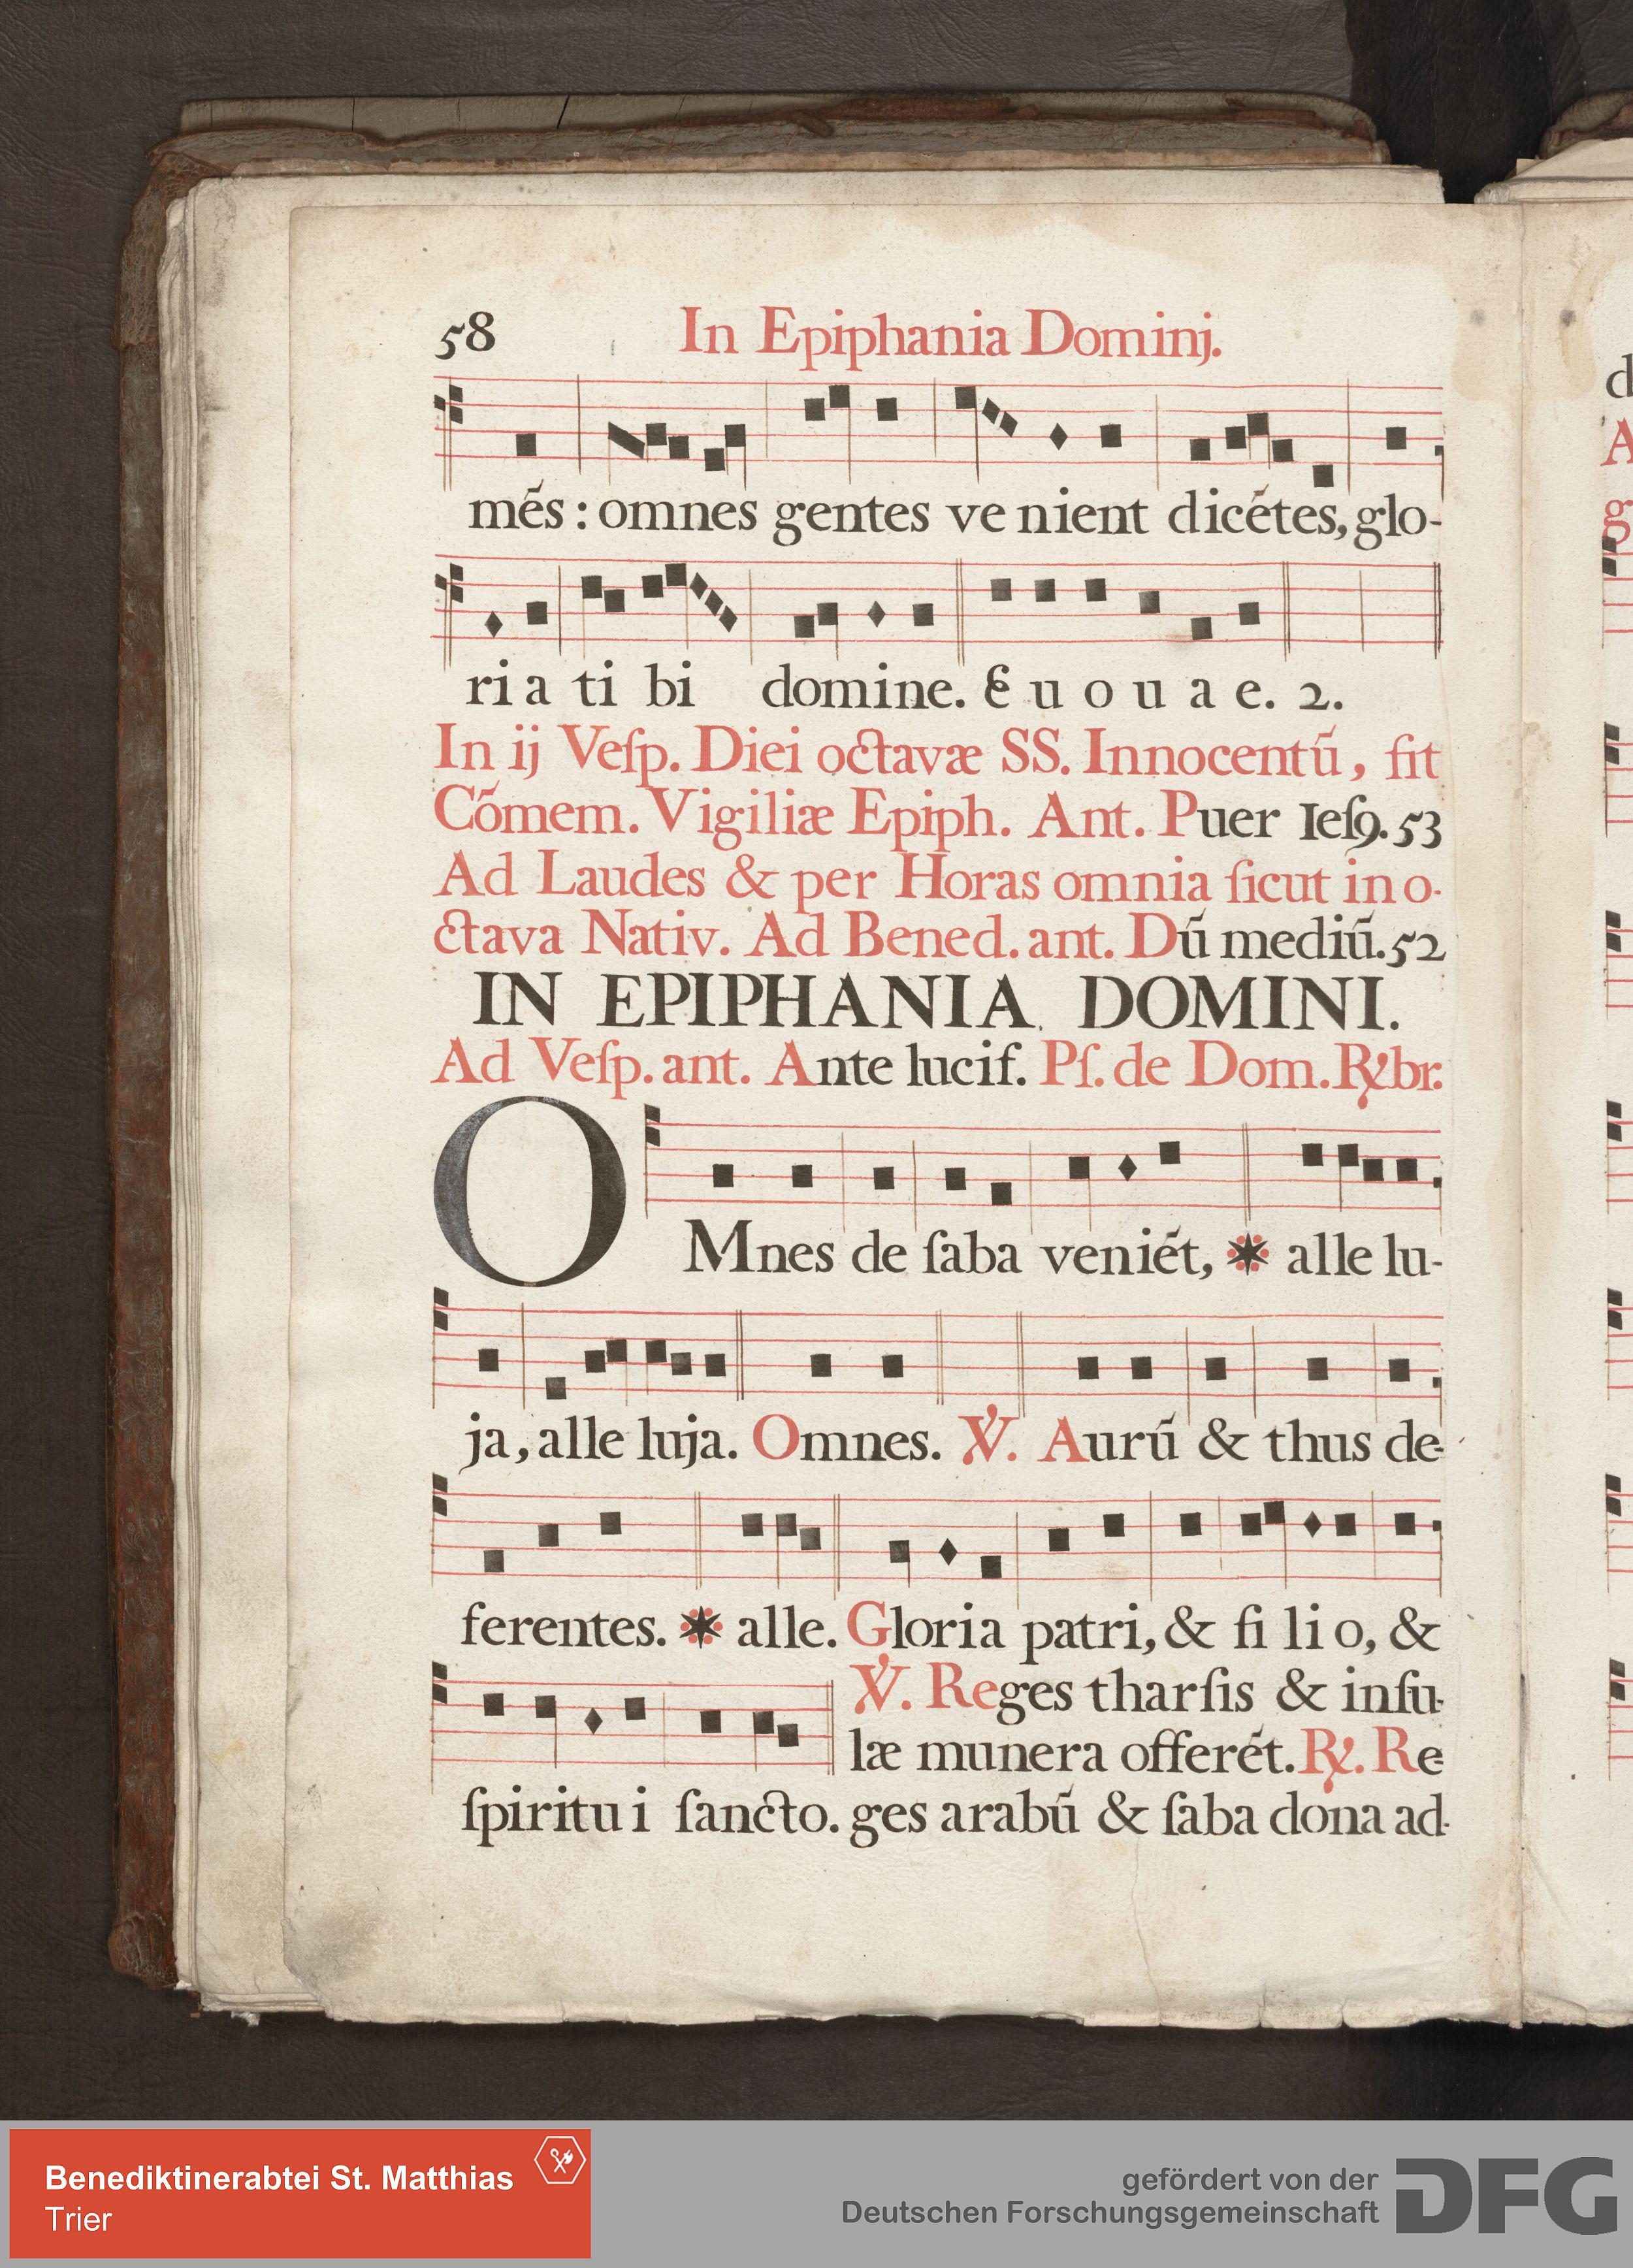 58 In Epiphania Dominj.
més : omnes gentes ve nient dicẽtes, glo-
ri a ti bi domine. E u o u a e. 2.
In ij Veſp. Diei octavæ SS. Innocentũ, fit
Cõmem. Vigiliæ Epiph. Ant. Puer Ieſꝰ. 53
Ad Laudes & per Horas omnia ſicut in o-
ctava Nativ. Ad Bened. ant. Dũ mediũ. 52
IN EPIPHANIA DOMINI.
Ad Veſp. ant. Ante lucif. Pſ. de Dom. ℟br.
OMnes de ſaba veniẽt, * alle lu-
ja, alle luja. Omnes. ℣. Aurũ & thus de-
ferentes. * alle. Gloria patri, & fi li o, &
℣. Reges tharſis & inſu-
læ munera offerẽt. ℟. Re-
ſpiritu i ſancto. ges arabũ & ſaba dona ad-
d
A
g
Benediktinerabtei St. Matthias
Trier
gefördert von der
Deutschen Forschungsgemeinschaft
DFG